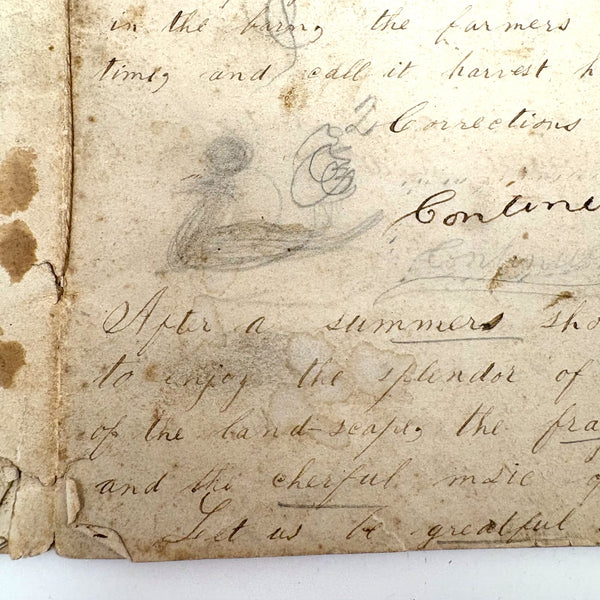 in the barn, the farmers
time, and call it harvest h
2
Corrections
Contine
Continue
After a summers sho
to injoy the splendor of
of the land-scape, the fra
and the cherful music of
Let us be greatful